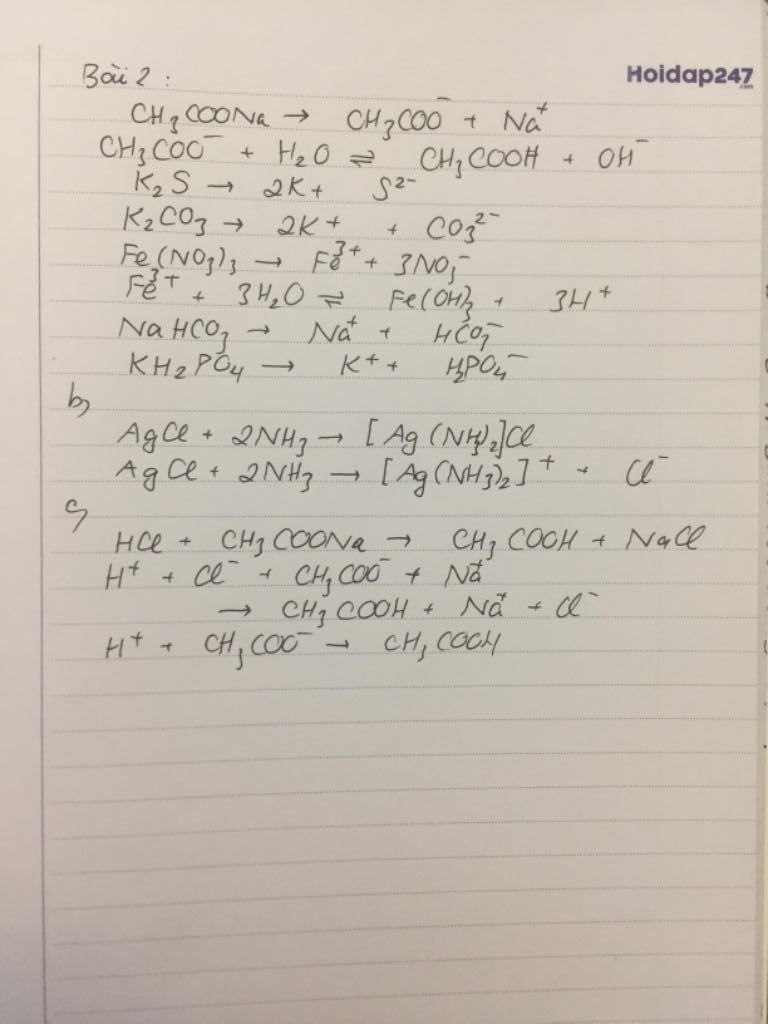 Bài 2 :
Hoidap247
.com
CH₃COONa → CH₃COO⁻ + Na⁺
CH₃COO⁻ + H₂O ⇌ CH₃COOH + OH⁻
K₂S → 2K+ S²⁻
K₂CO₃ → 2K⁺ + CO₃²⁻
Fe(NO₃)₃ → Fe³⁺ + 3NO₃⁻
Fe³⁺ + 3H₂O ⇌ Fe(OH)₃ + 3H⁺
NaHCO₃ → Na⁺ + HCO₃⁻
KH₂PO₄ → K⁺ + H₂PO₄⁻
b)
AgCl + 2NH₃ → [Ag(NH₃)₂]Cl
AgCl + 2NH₃ → [Ag(NH₃)₂]⁺ + Cl⁻
c)
HCl + CH₃COONa → CH₃COOH + NaCl
H⁺ + Cl⁻ + CH₃COO⁻ + Na⁺
→ CH₃COOH + Na⁺ + Cl⁻
H⁺ + CH₃COO⁻ → CH₃COOH